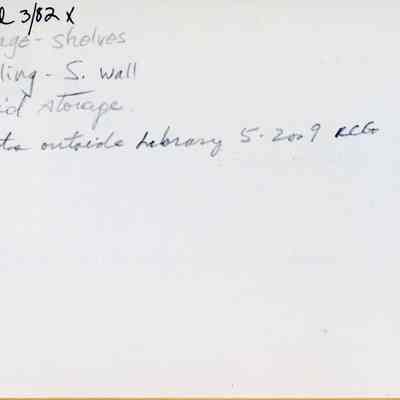 3/82 X
age - Shelves
ling - S. Wall
id Storage.
outside Library 5-2009 RCG